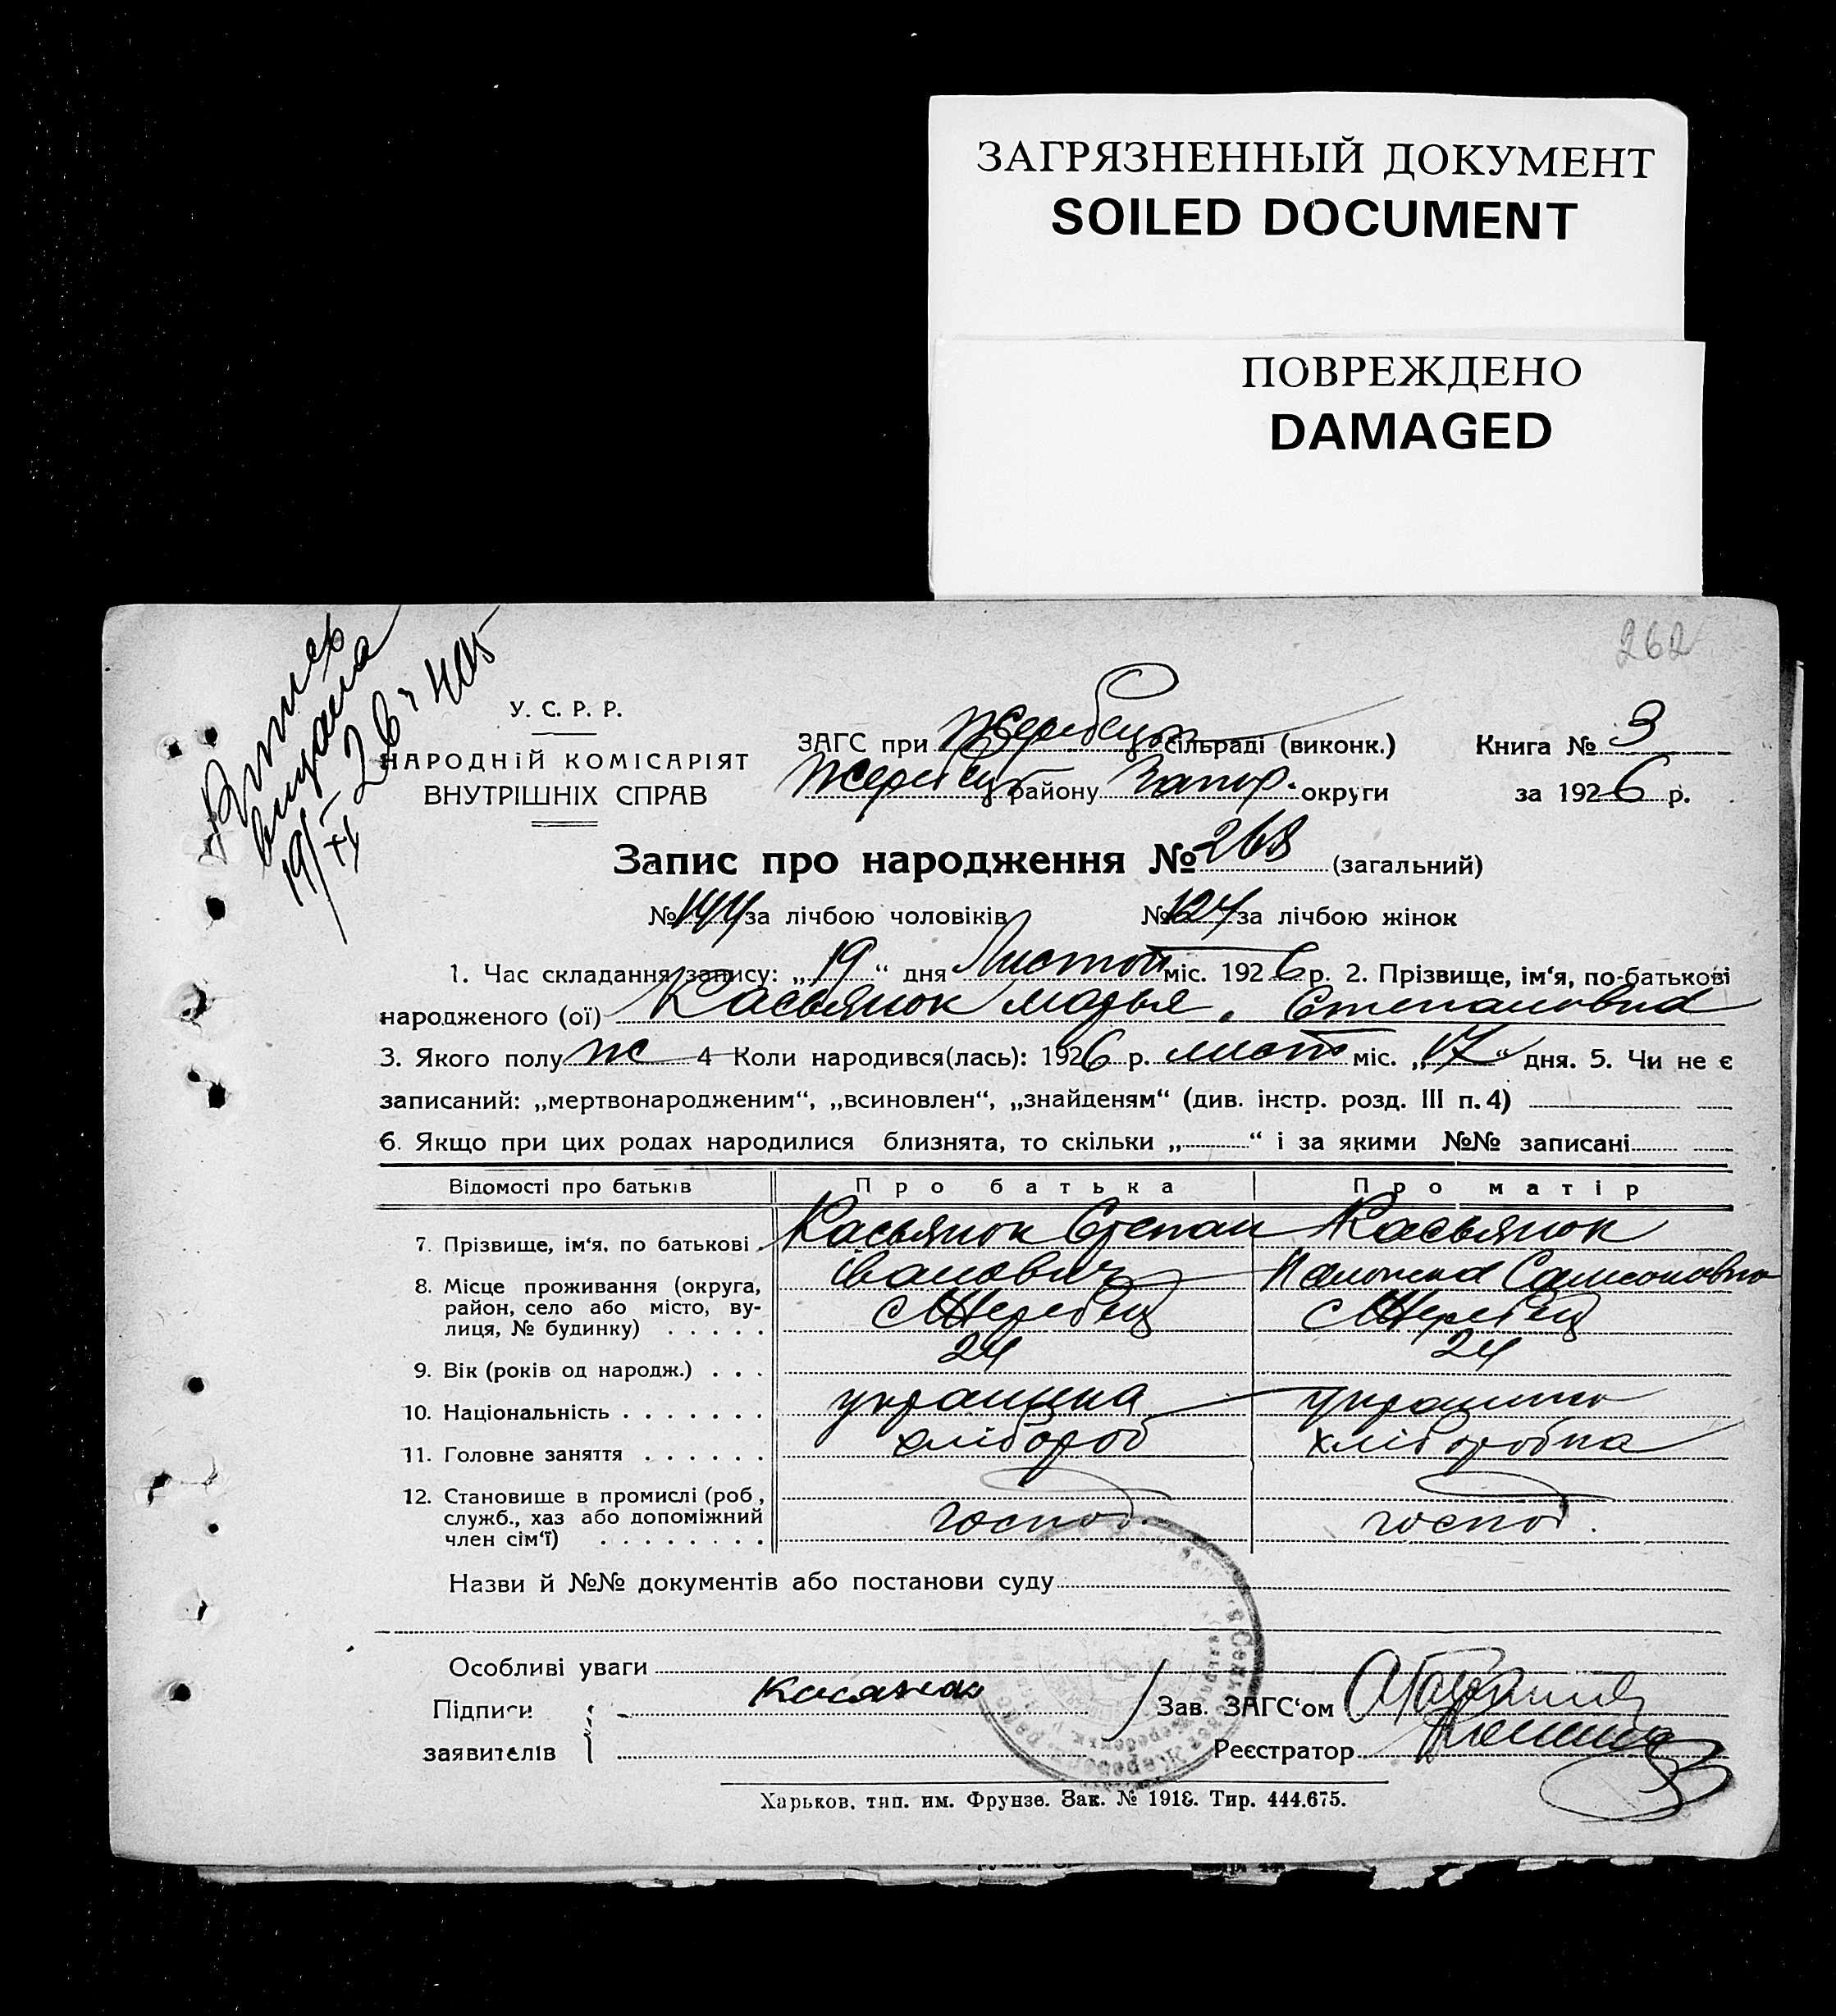 ЗАГРЯЗНЕННЫЙ ДОКУМЕНТ
SOILED DOCUMENT
ПОВРЕЖДЕНО
DAMAGED
262
Витяг
видана
19/XI 26 г 405
У. С. Р. Р.
НАРОДНІЙ КОМІСАРІЯТ
ВНУТРІШНІХ СПРАВ
ЗАГС при Жеребецк сільраді (виконк.) Книга № 3
Жеребецк району Запор. округи за 1926 р.
Запис про народження № 268 (загальний)
№ 144 за лічбою чоловіків № 124 за лічбою жінок
1. Час складання запису: „19“ дня Листоп міс. 1926 р. 2. Прізвище, ім‘я, по-батькові
народженого (ої) Касьянок Марья. Степановна
3. Якого полу ж 4 Коли народився(лась): 1926 р. лист міс. „17“ дня. 5. Чи не є
записаний: „мертвонародженим“, „всиновлен“, „знайденям“ (див. інстр. розд. III п. 4)
6. Якщо при цих родах народилися близнята, то скільки „ “ і за якими №№ записані
Відомості про батьків Про батька Про матір
7. Прізвище, ім‘я, по батькові Касьянок Степан Касьянок
Іванович Самсоновна
8. Місце проживання (округа, район, село або місто, вулиця, № будинку) с Жеребец с Жеребец
9. Вік (років од народж.) 24 24
10. Національність украинка украинка
11. Головне заняття хлібороб хлiборобка
12. Становище в промислі (роб, служб., хаз або допоміжний член сім‘ї) господ. господ.
Назви й №№ документів або постанови суду
Особливі уваги
Підписи Касянок Зав. ЗАГС‘ом
заявителів Реєстратор
Харьков, тип. им. Фрунзе. Зак. № 1918. Тир. 444.675.